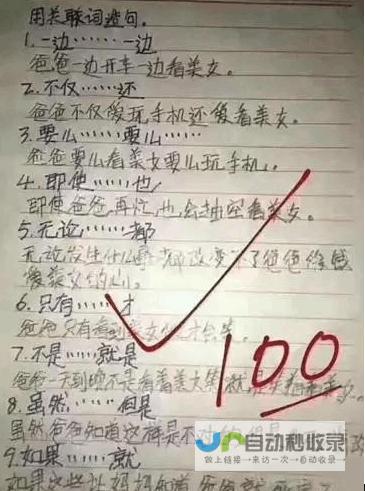 用关联词造句。
1.一边……一边
爸爸一边开车一边看美女。
2.不仅……还
爸爸不仅爱玩手机还爱看美女。
3.要么……要么……
爸爸要么看美女要么玩手机。
4.即使……也
即使爸爸再忙,也会抽空看美女。
5.无论……都
无论发生什么事都改变不了爸爸
爱美女的心。
6.只有……才
爸爸只有看到美女
7.不是……就是
爸爸一天到晚不是看着美女笑就是
8.虽然……但是
虽然爸爸知道这样是不对的但是
9.如果……就
如果这些让妈妈知道
100
自动秒收录
做上链接→来访一次→自动收录